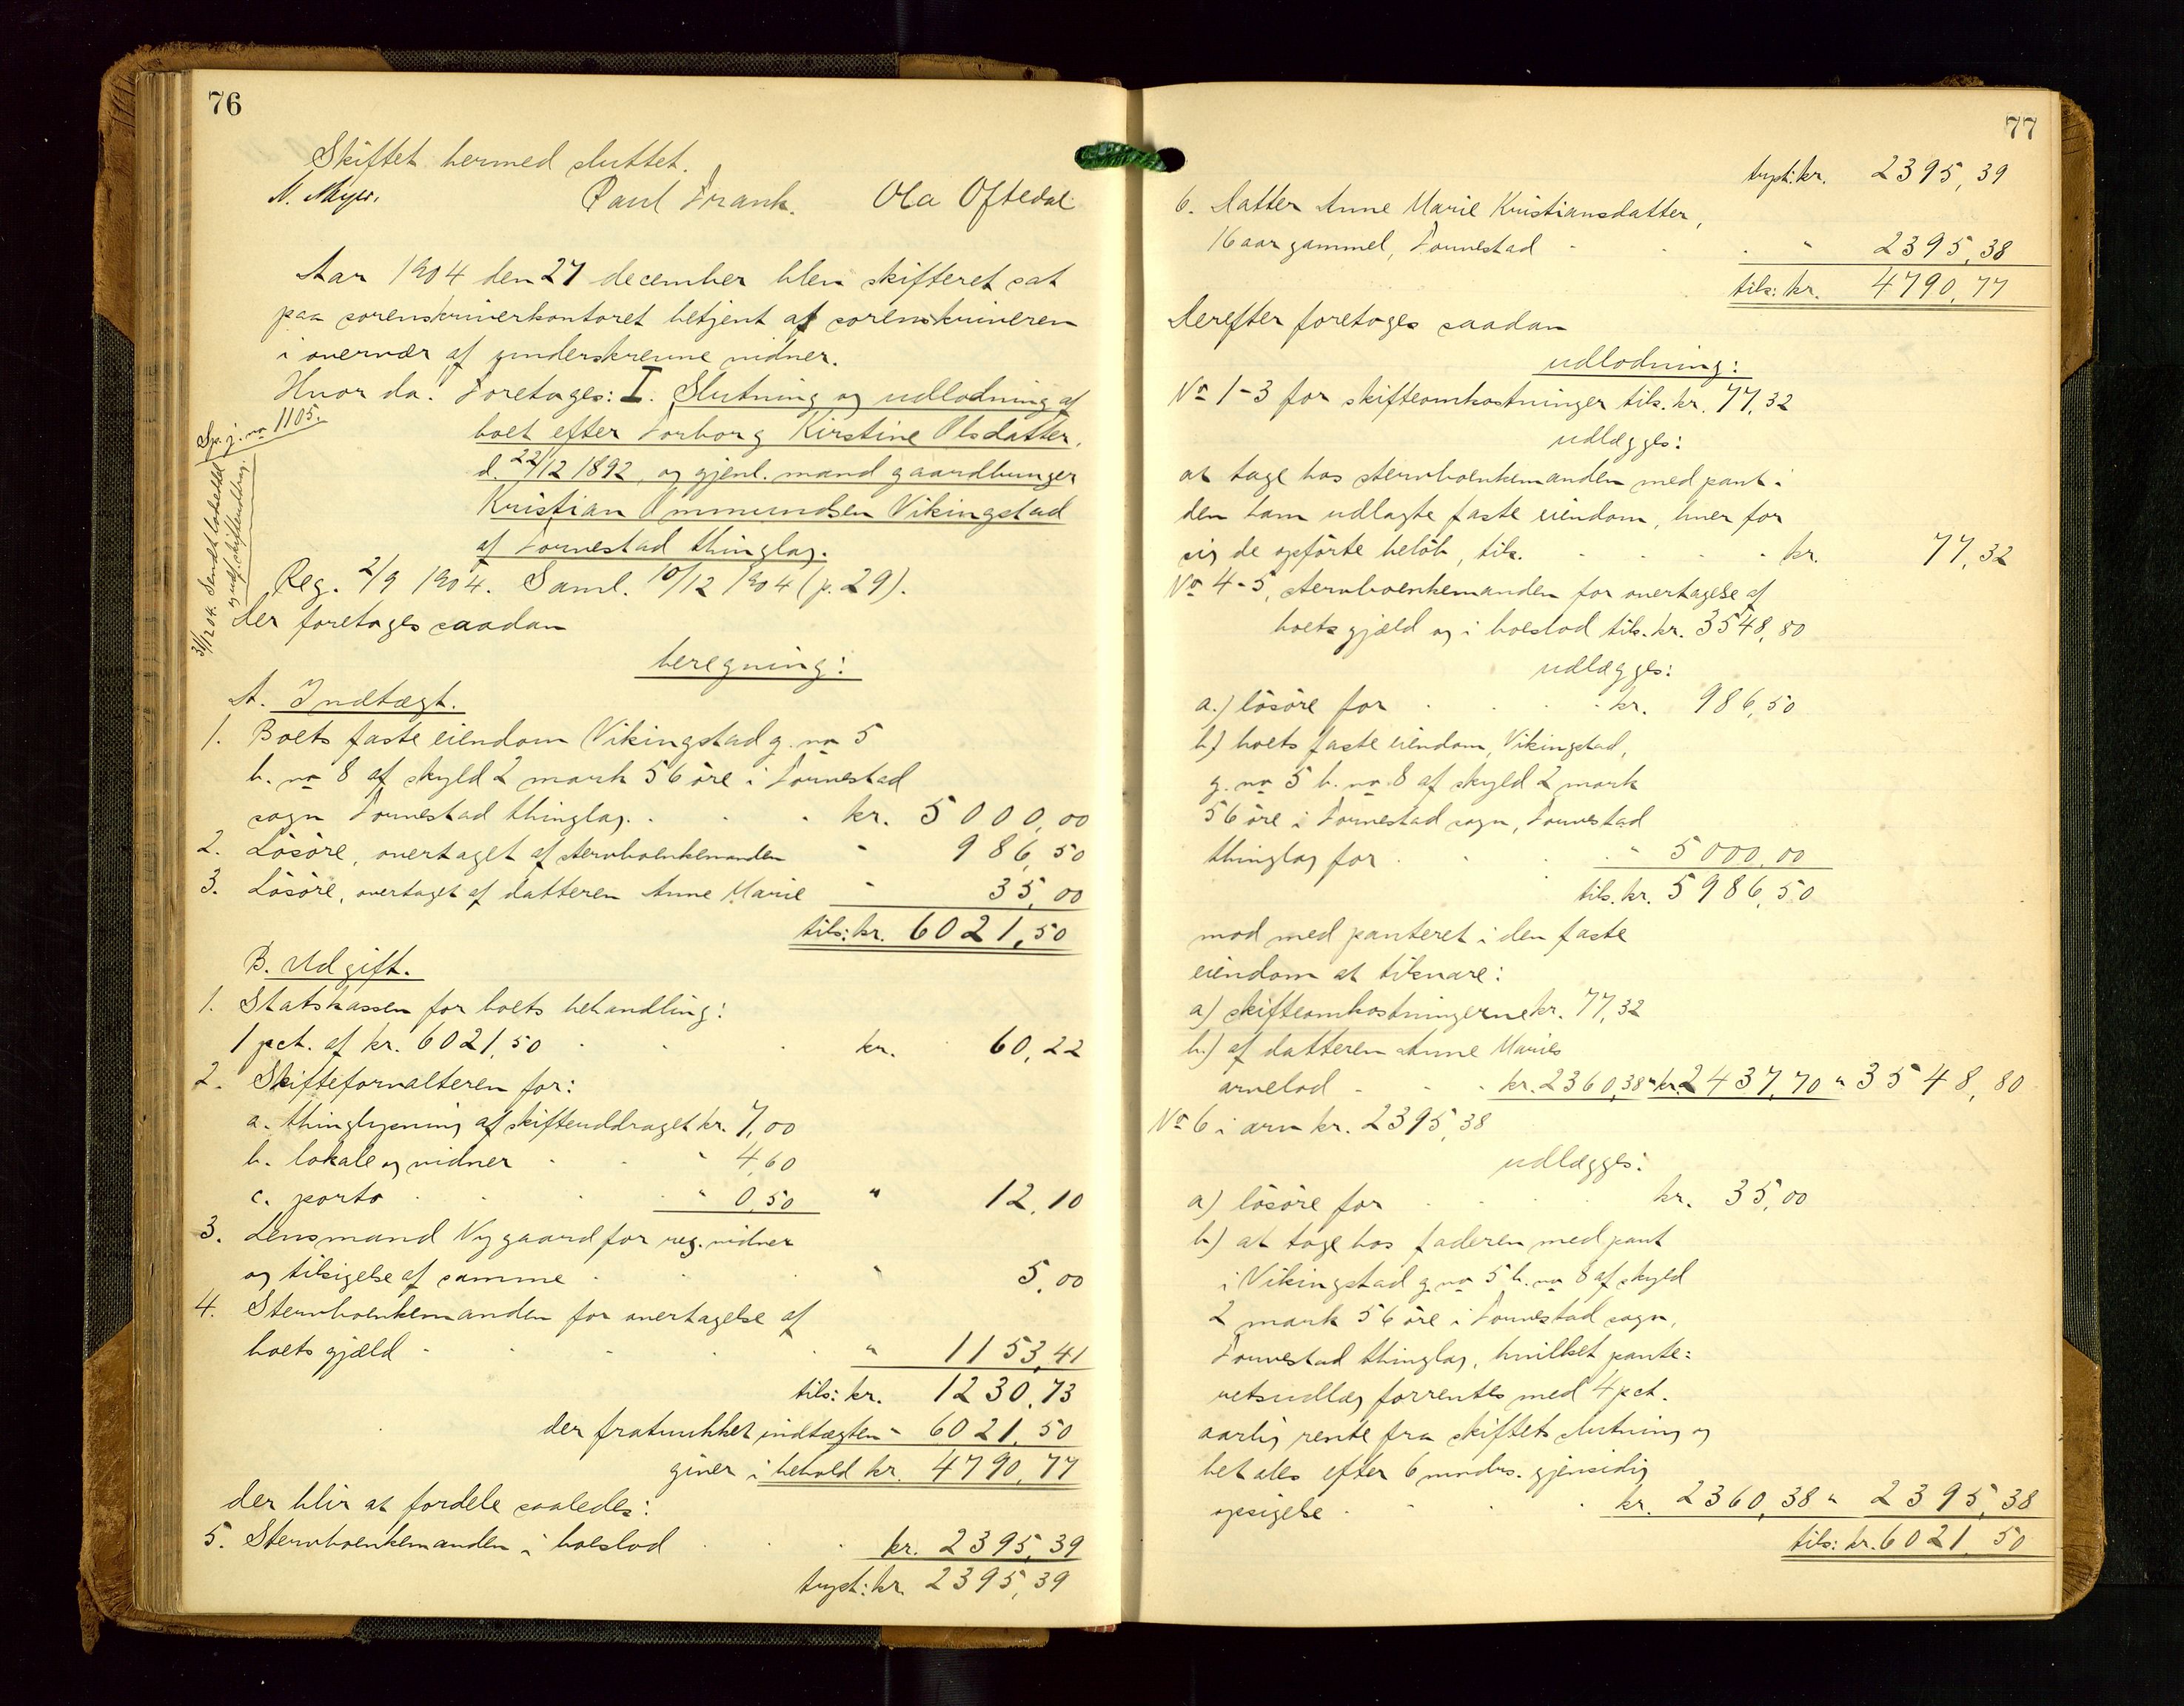 76
Skiftet hermed sluttet.
N. Meyer. Paul Frank. Ola Oftedal
Aar 1904 den 27 december blev skifteret sat
paa sorenskriverkontoret betjent af sorenskriveren
i overvær af underskrevne vidner.
Hvor da: Foretages: I. Slutning og udlodning af
boet efter Torborg Kirstine Olsdatter,
d. 22/12 1892, og gjenl. mand gaardbruger
Kristian Ommundsen Vikingstad
af Torvestad thinglag.
Sp. j. no 1105.
31/12 04. Sendt lodseddel og udf. skifteuddrag.
Reg. 2/9 1904. Saml. 10/12 1904 (p. 29).
Der foretages saadan
beregning:
A. Indtægt.
1. Boets faste eiendom Vikingstad g. no 5
b. no 8 af skyld 2 mark 56 öre i Torvestad
sogn Torvestad thinglag. kr. 5000,00
2. Lösöre, overtaget af stervboenkemanden " 986,50
3. Lösöre, overtaget af datteren Anne Marie " 35,00
tils: kr. 6021,50
B. Udgift.
1. Statskassen for boets behandling:
1 pct. af kr. 6021,50 kr. 60,22
2. Skifteforvalteren for:
a. thinglysning af skifteuddraget kr. 7,00
b. lokale og vidner " 4,60
c. porto " 0,50 " 12,10
3. Lensmand Nygaard for reg. vidner
og tilsigelse af samme " 5,00
4. Stervboenkemanden for overtagelse af
boets gjæld " 1153,41
tils: kr. 1230,73
der fratrukket indtægten " 6021,50
giver i behold kr. 4790,77
der blir at fordele saaledes:
5. Stervboenkemanden i boeslod kr. 2395,39
trpt: kr. 2395,39
77
trpt: kr. 2395,39
6. Datter Anne Marie Kristiansdatter,
16 aar gammel, Torvestad " 2395,38
tils: kr. 4790,77
Derefter foretoges saadan
udlodning:
No 1-3 for skifteomkostninger tils. kr. 77,32
udlægges:
at tage hos stervboenkemanden med pant i
den ham udlagte faste eiendom, hver for
sig de opförte belöb, tils. kr. 77,32
No 4-5, stervboenkemanden for overtagelse af
boets gjæld og i boeslod tils. kr. 3548,80
udlægges:
a.) lösöre for kr. 986,50
b.) boets faste eiendom, Vikingstad,
g. no 5 b. no 8 af skyld 2 mark
56 öre i Torvestad sogn, Torvestad
thinglag for " 5000,00
tils. kr. 5986,50
mod med panteret i den faste
eiendom at tilsvare:
a) skifteomkostningerne kr. 77,32
b.) af datteren Anne Maries
arvelod kr. 2360,38 " kr. 2437,70 " 3548,80
No 6 i arv kr. 2395,38
udlægges:
a) lösöre for kr. 35,00
b) at tage hos faderen med pant
i Vikingstad g. no 5 b. no 8 af skyld
2 mark 56 öre i Torvestad sogn,
Torvestad thinglag, hvilket pante=
retsudlæg forrentes med 4 pct.
aarlig rente fra skiftets slutning og
betales efter 6 mndrs. gjensidig
opsigelse kr. 2360,38 " 2395,38
tils: kr. 6021,50